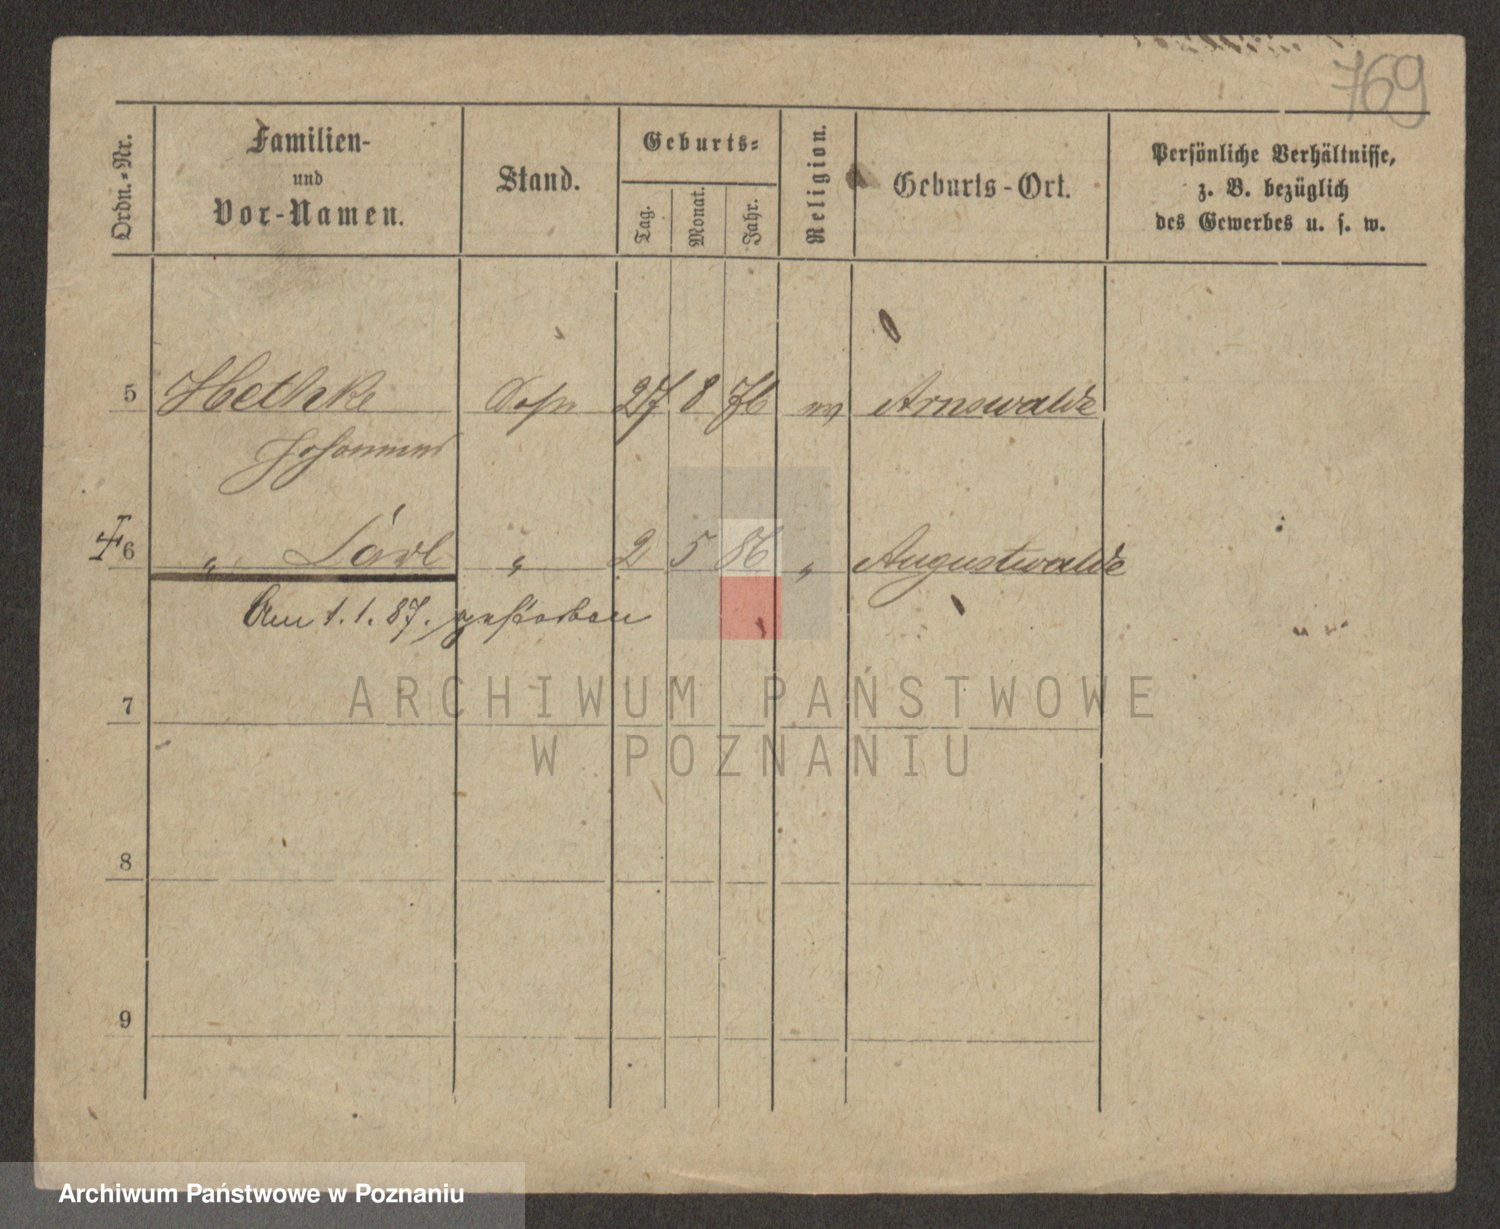 769
Ordn.-Nr.
Familien-
und
Vor-Namen.
Stand.
Geburts-
Tag.
Monat.
Jahr.
Religion.
Geburts-Ort.
Persönliche Verhältnisse,
z. B. bezüglich
des Gewerbes u. s. w.
5 Hethke 27 8 Arnswalde
6 " " 2 5 86 " Augustwalde
Am 1.1.87. gestorben
7
8
9
ARCHIWUM PAŃSTWOWE
W POZNANIU
Archiwum Państwowe w Poznaniu